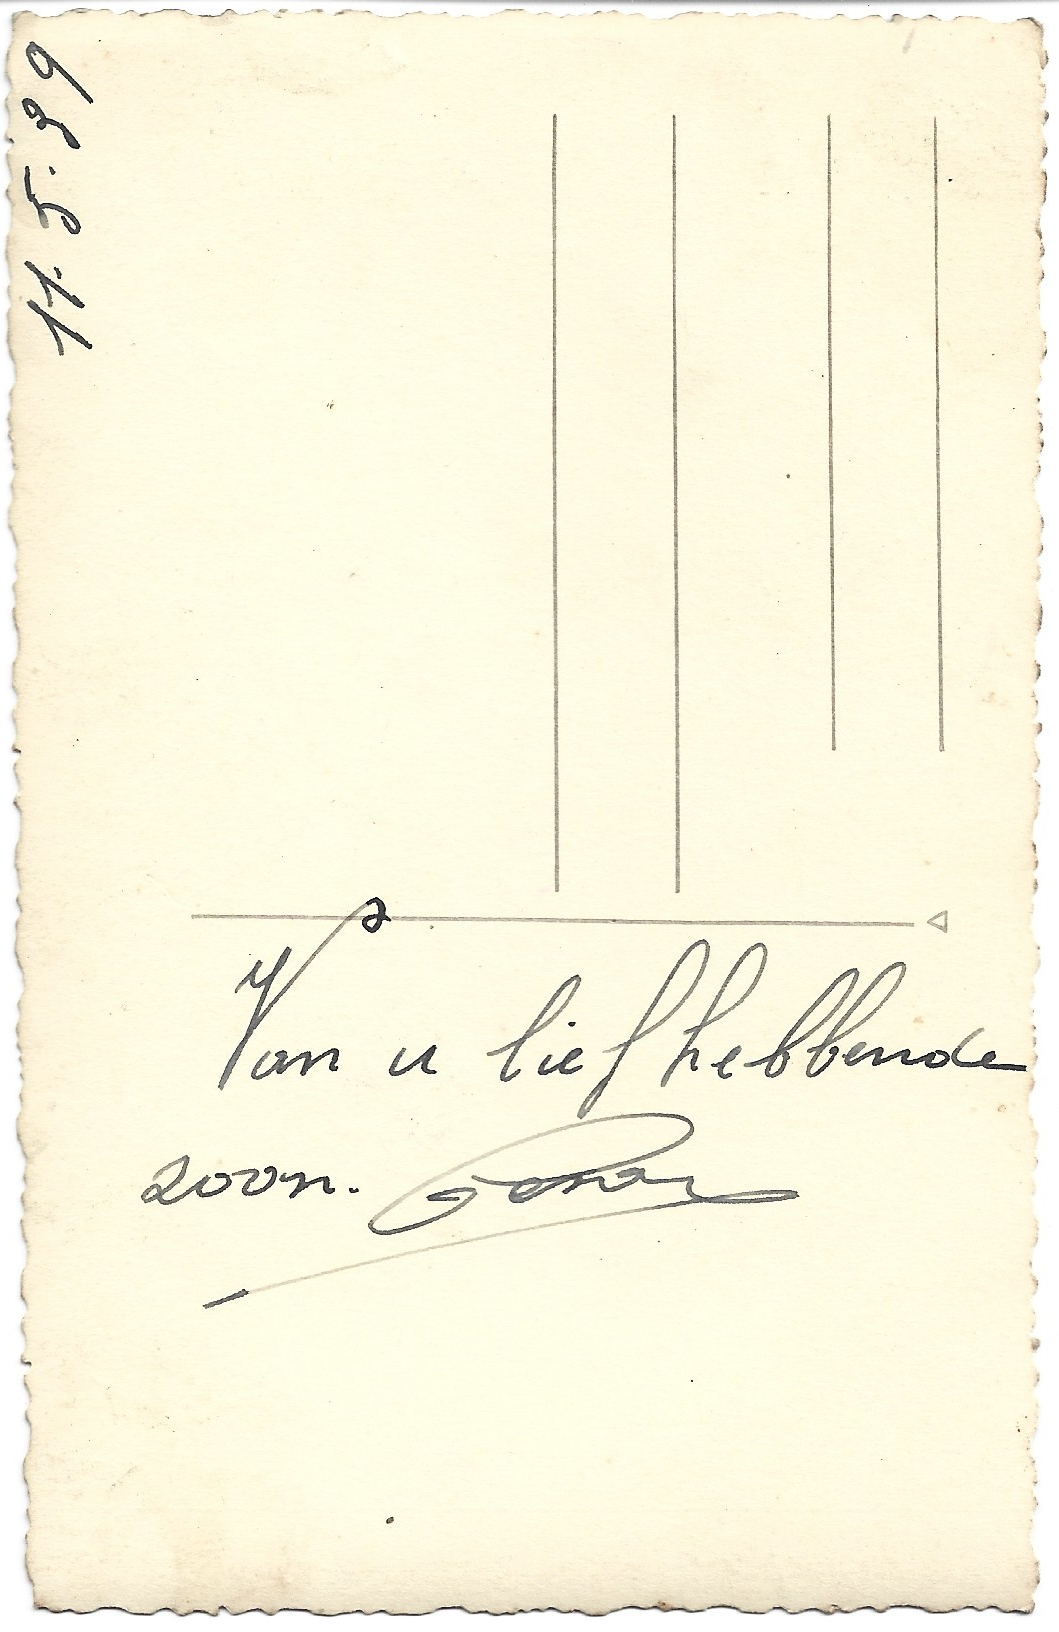 11.5.39
Van u liefhebbende
zoon.